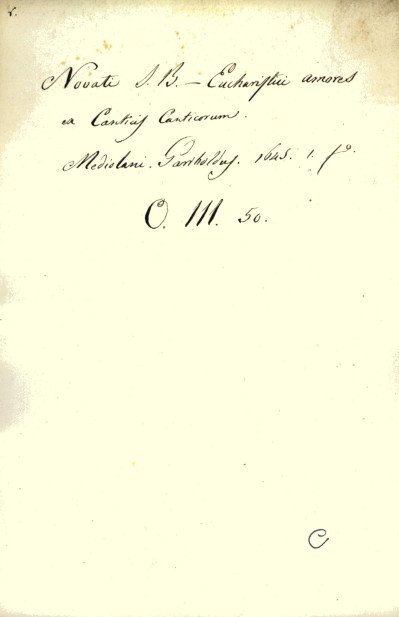 Novati J. B. — Eucharistici amores
ex Canticis Canticorum.
Mediolani. 1645. 1. fo.
O. III. 50.
C